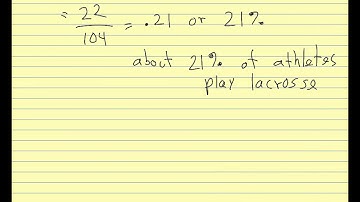 = 22/104 = .21 or 21%
about 21% of athletes
play lacrosse